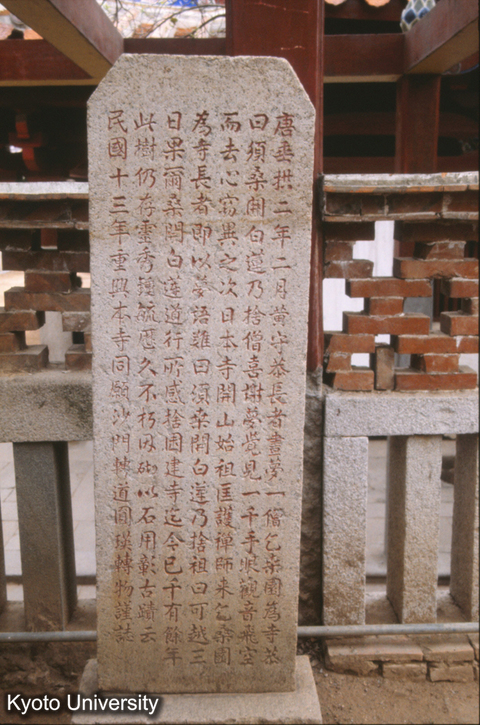 唐垂拱二年二月黃守恭長者晝夢一僧乞桑園為寺恭
曰須桑開白蓮乃捨僧喜謝夢覺見一千手眼觀音飛空
而去心竊異之次日本寺開山始祖匡護禪師來乞桑園
為寺長者即以夢語雖曰須桑開白蓮乃捨祖曰可越三
日果爾桑開白蓮道行所感捨園建寺迄今已千有餘年
此樹仍存靈秀鍾毓歷久不朽因砌以石用彰古蹟云
民國十三年重興本寺同願沙門轉道圓瑛轉物謹誌
Kyoto University